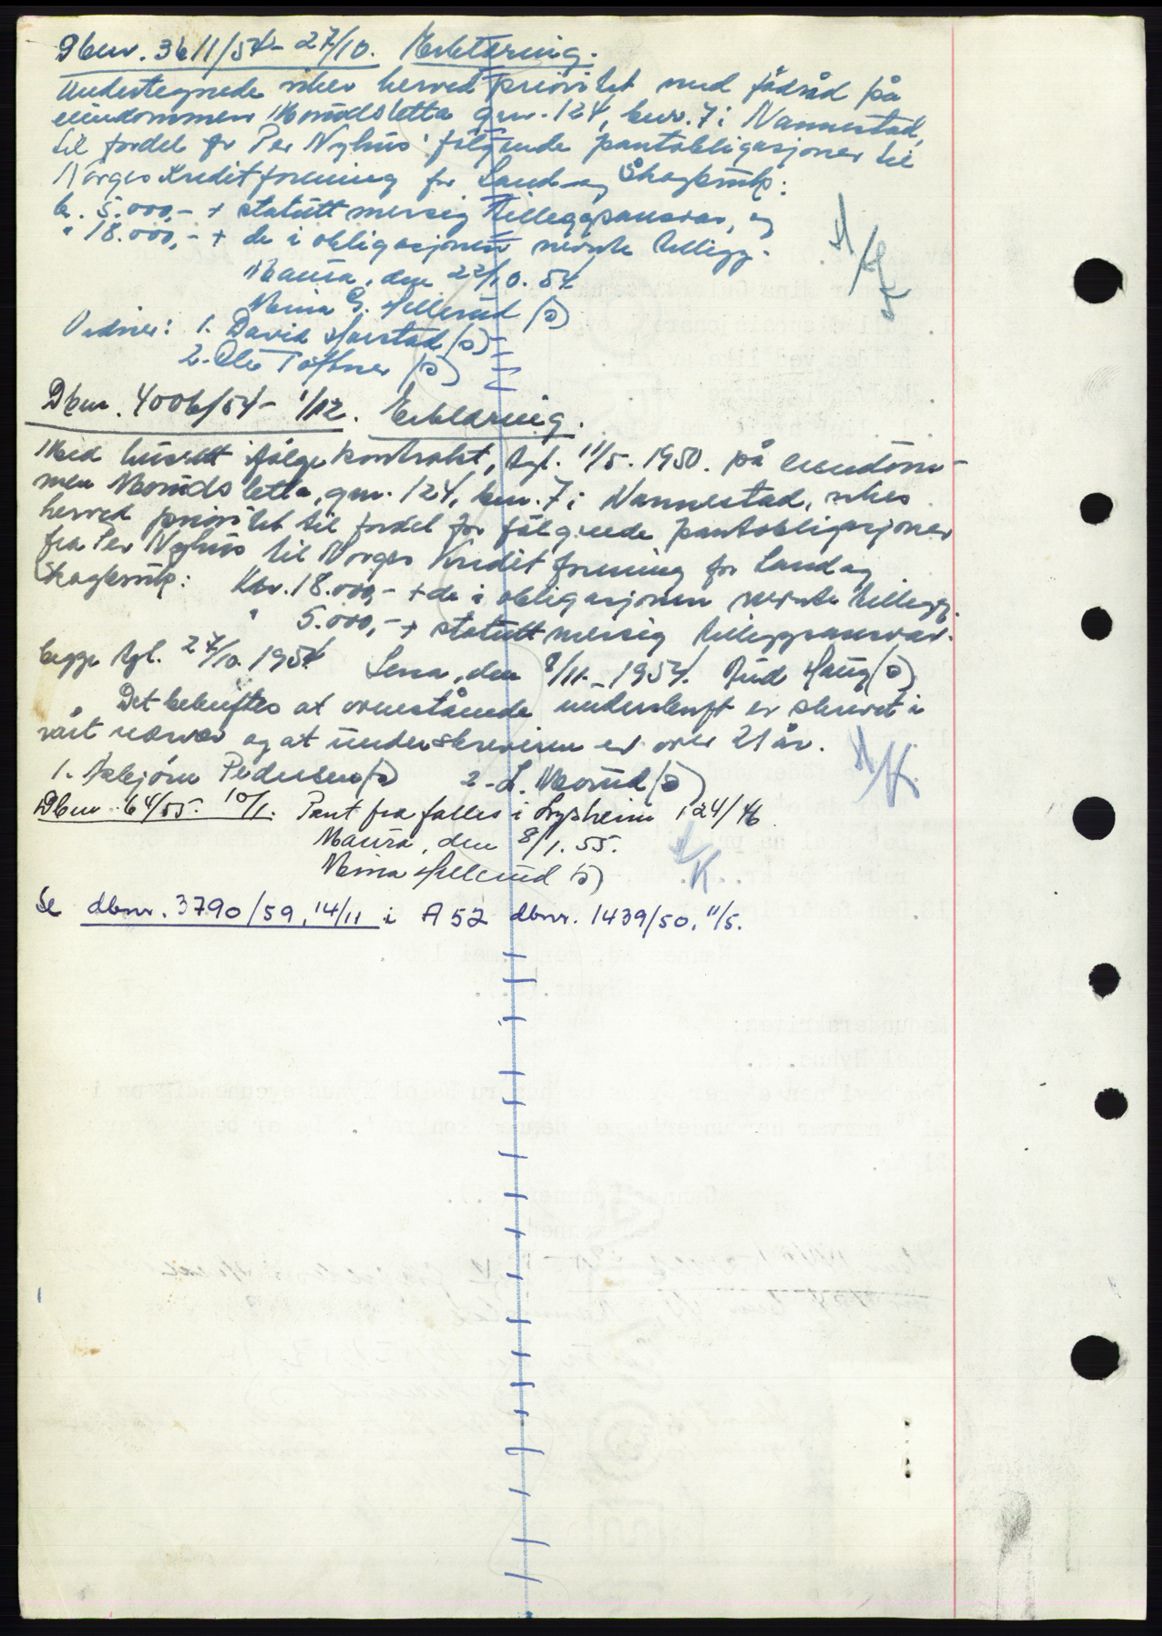 Dbnr. 3611/54 - 27/10. Erklæring.
Undertegnede viker herved prioritet med föderåd på
eiendommen Morudsletta gnr. 124, bnr. 7 i Nannestad,
til fordel for Per Nyhus' følgende pantobligasjoner til
Norges Kreditforening for Land og Skogbruk:
kr. 5.000,- + statuttmessig tilleggsansvar, og
" 18.000,- + de i obligasjonen nevnte tillegg.
Maura, den 22/10. 54
Mina G. Hellerud (s)
Vidner: 1. David Harstad (s)
2. Ole Toftner (s)
Dbnr. 4006/54 - 1/12. Erklæring.
Med husrett ifølge kontrakt, tgl. 11/5. 1950. på eiendom-
men Morudsletta, gnr. 124, bnr. 7 i Nannestad, vikes
herved prioritet til fordel for følgende pantobligasjoner
fra Per Nyhus til Norges Kreditforening for Land og
Skogbruk: Kr. 18.000,- + de i obligasjonen nevnte tillegg.
" 5.000,- + statuttmessig tilleggsansvar.
begge tgl. 27/10. 1954 Lena, den 8/11. 1954. Haug (s)
Det bekreftes at ovenstående underskrift er skrevet i
vårt nærvær og at underskriveren er over 21 år.
1. Asbjørn Pedersen (s) 2. L. Morud (s)
Dbnr. 64/55. 10/1. Pant frafalles i Lysheim 124/46
Maura, den 8/1. 55.
Mina Hellerud (s)
Se dbnr. 3790/59, 14/11 i A 52 dbnr. 1439/50, 11/5.